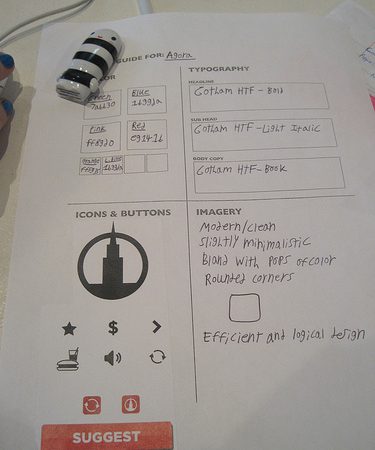 GUIDE FOR: Agora
TYPOGRAPHY
HEADLINE
Gotham HTF - Bold
SUB HEAD
Gotham HTF - Light Italic
BODY COPY
Gotham HTF - Book
OR
Blue
Pink
Red
ICONS & BUTTONS
$
SUGGEST
IMAGERY
Modern/clean
Slightly minimalistic
Bland with pops of color
Rounded corners
Efficient and logical design